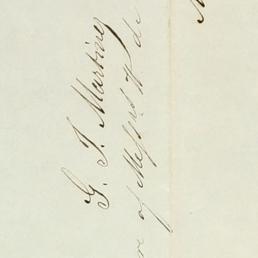 G. J. Martine
of Messrs W. de